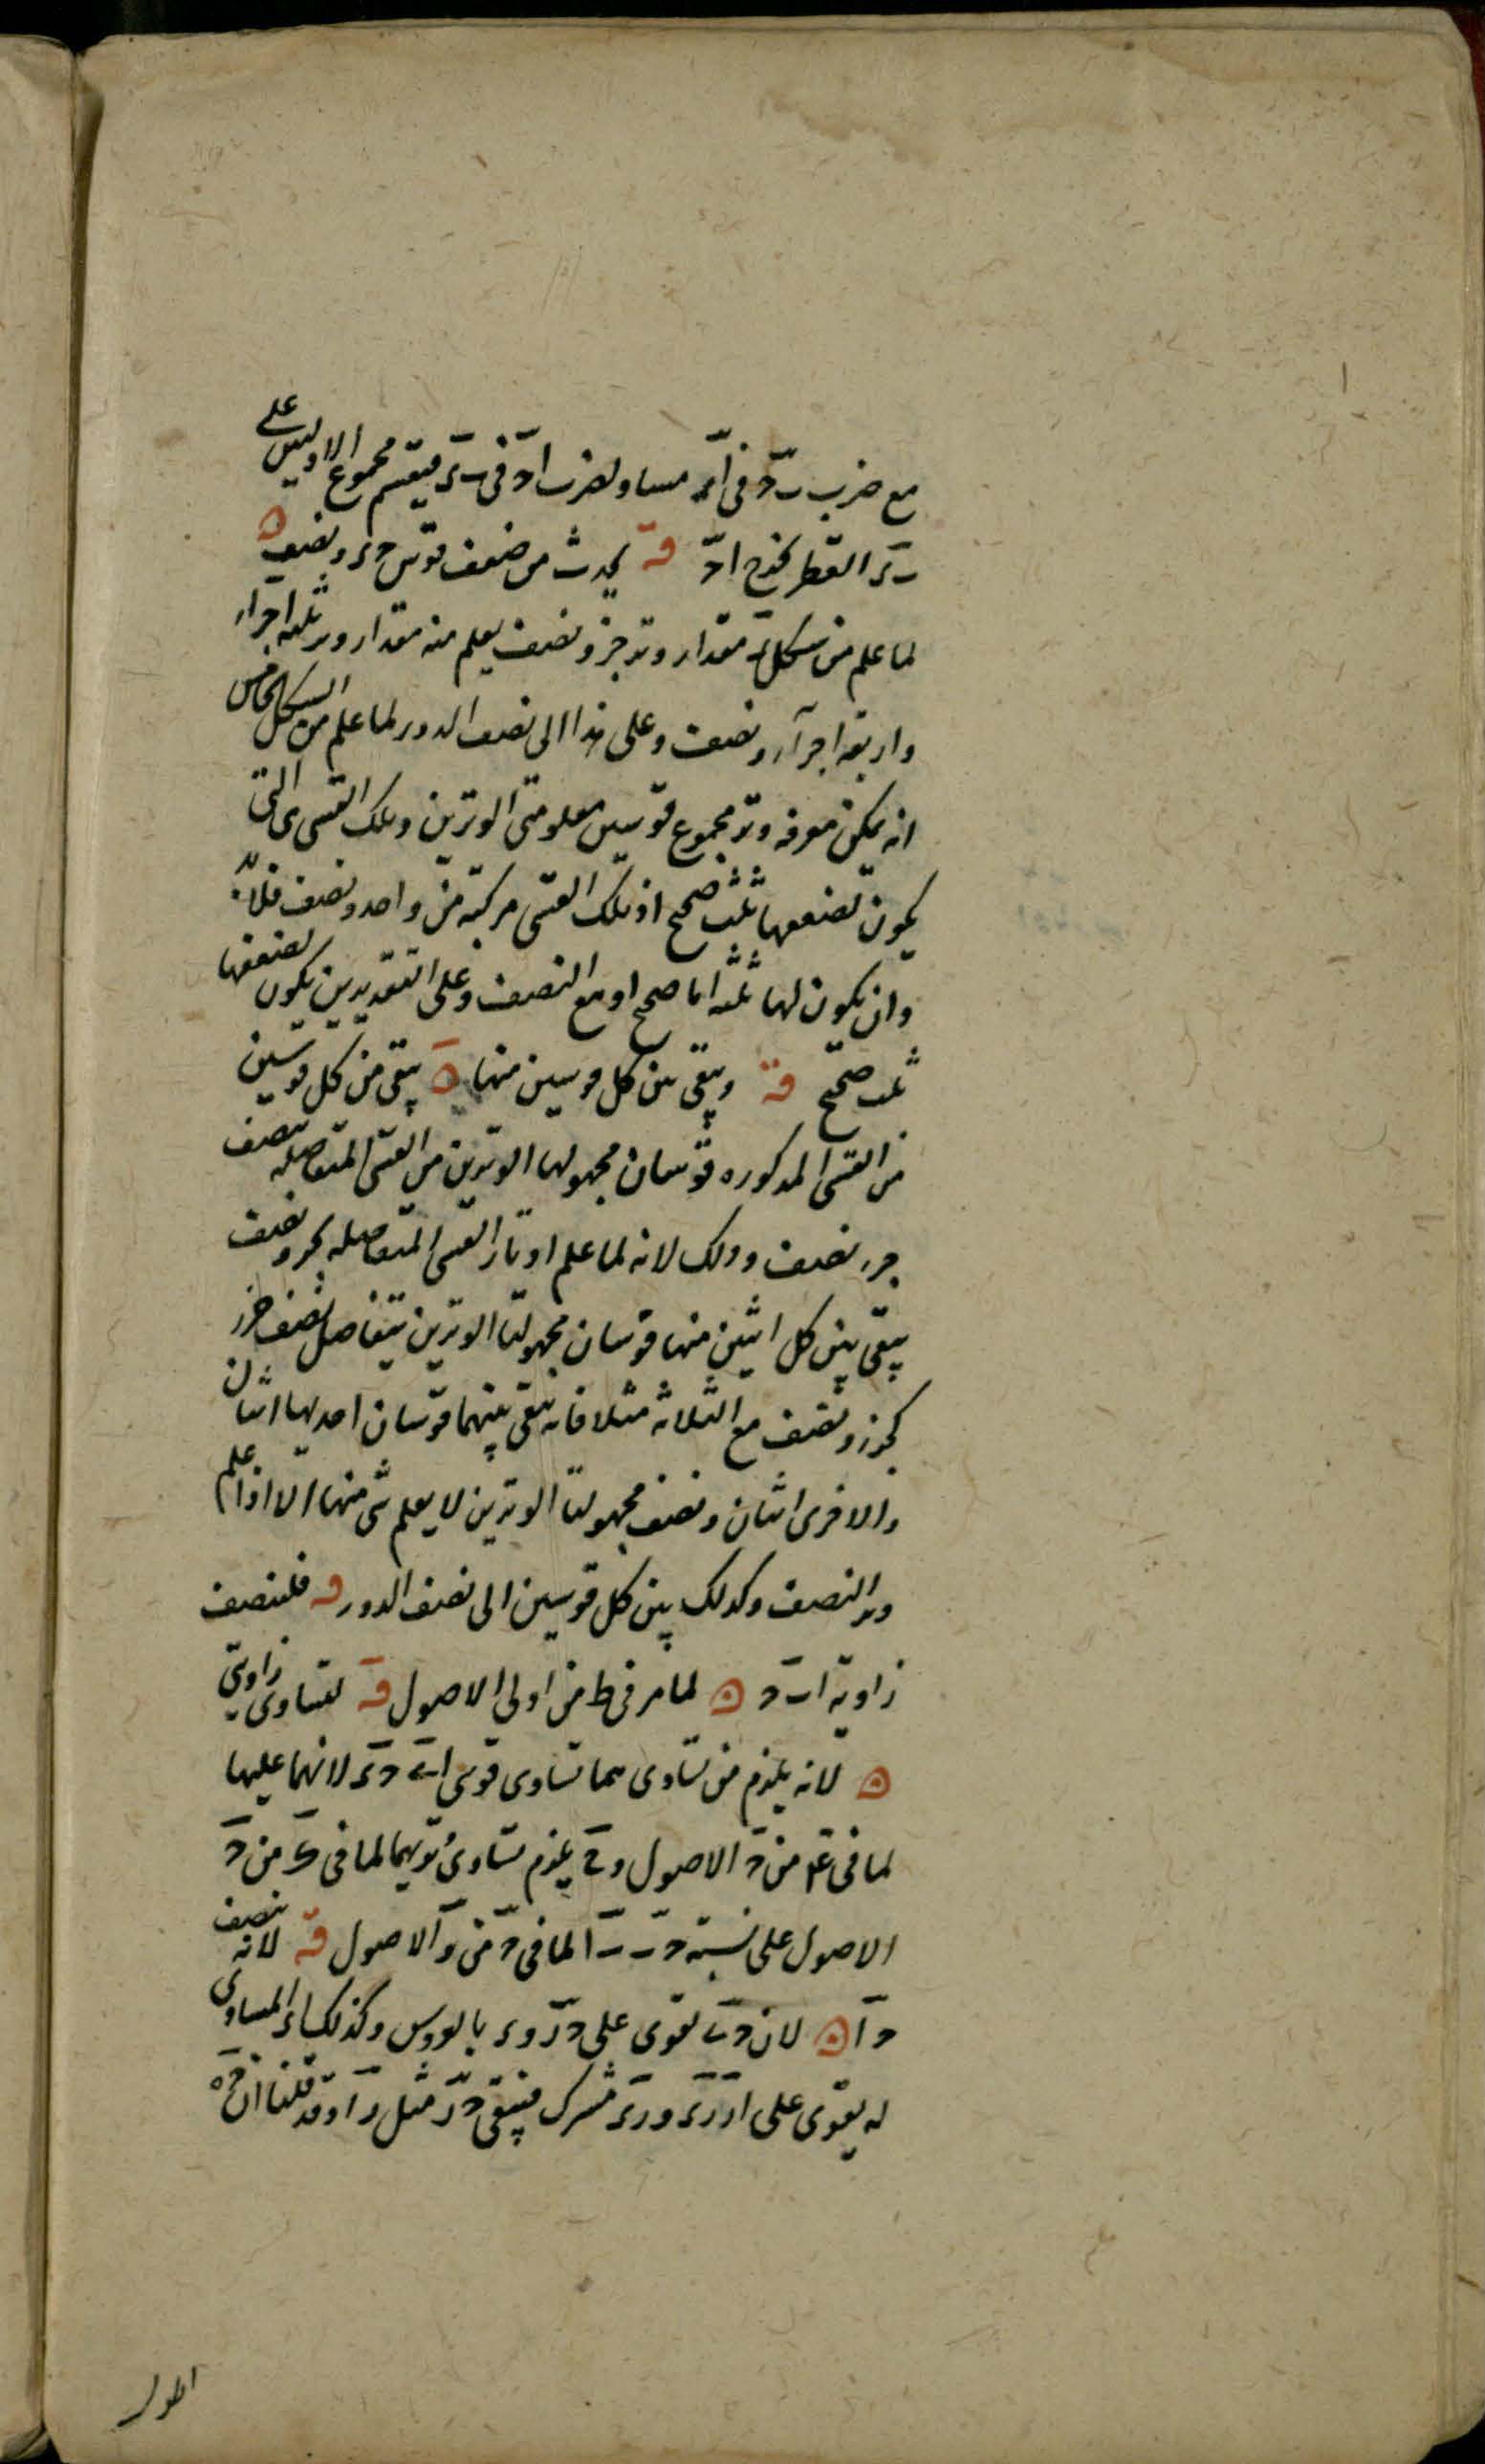 مع ضرب ٮح فى اء مساو لضرب اح فى ٮء فيقسم مجموع الاولين على
ٮء القطر يخرج اح قه يحدث من ضعف قوس حء ونصف ه
لما علم من شكل مقدار وتر جزء ونصف يعلم منه مقدار وتر ثلثه اجزاء
واربعه اجزآء ونصف وعلى هذا الى نصف الدور لما علم من الشكل الخامس
انه يمكن معرفه وتر مجموع قوسين معلومتى الوترين وتلك القسى التى
يكون لضعفها ثلث صحيح اذ تلك القسى مركبة من واحد ونصف فلا بد
وان يكون لها ثلثه اما صحيح او مع النصف وعلى التقديرين يكون لضعفها
ثلث صحيح قه ويبقى بين كل قوسين منها ه يبقى من كل قوسين
من القسى المذكوره قوسان مجهولها الوترين من القسى المتفاضله بنصف
جزء نصف وذلك لانه لما علم اوتار القسى المتفاضله بجزء ونصف
يبقى بين كل اثنين منها قوسان مجهولتا الوترين يتفاضل بنصف جزء
كجزء ونصف مع الثلاثه مثلا فانه يبقى بينهما قوسان احديها اثنان
والاخرى اثنان ونصف مجهولتا الوترين لا يعلم شى منها الا اذا علم
وتر النصف وكذلك بين كل قوسين الى نصف الدور قه فلننصف
زاويه اٮح ه لما مر فى ط من اولى الاصول قه لتساوى زاويتى
ه لانه يلزم من تساويهما تساوى قوسى اء حء لانهما عليها
لما فى من ح الاصول وح يلزم تساوى وتريهما لما فى من ح
الاصول على نسبة حٮ ٮا لما فى ح من و الاصول قه لانه نصف
حا ه لان حء يقوى على حر وء بالعروس وكذلك اء المساوى
له يقوى على ار رء ورء مشترك فيبقى حر مثل را وقد قلنا ان حه
اطول